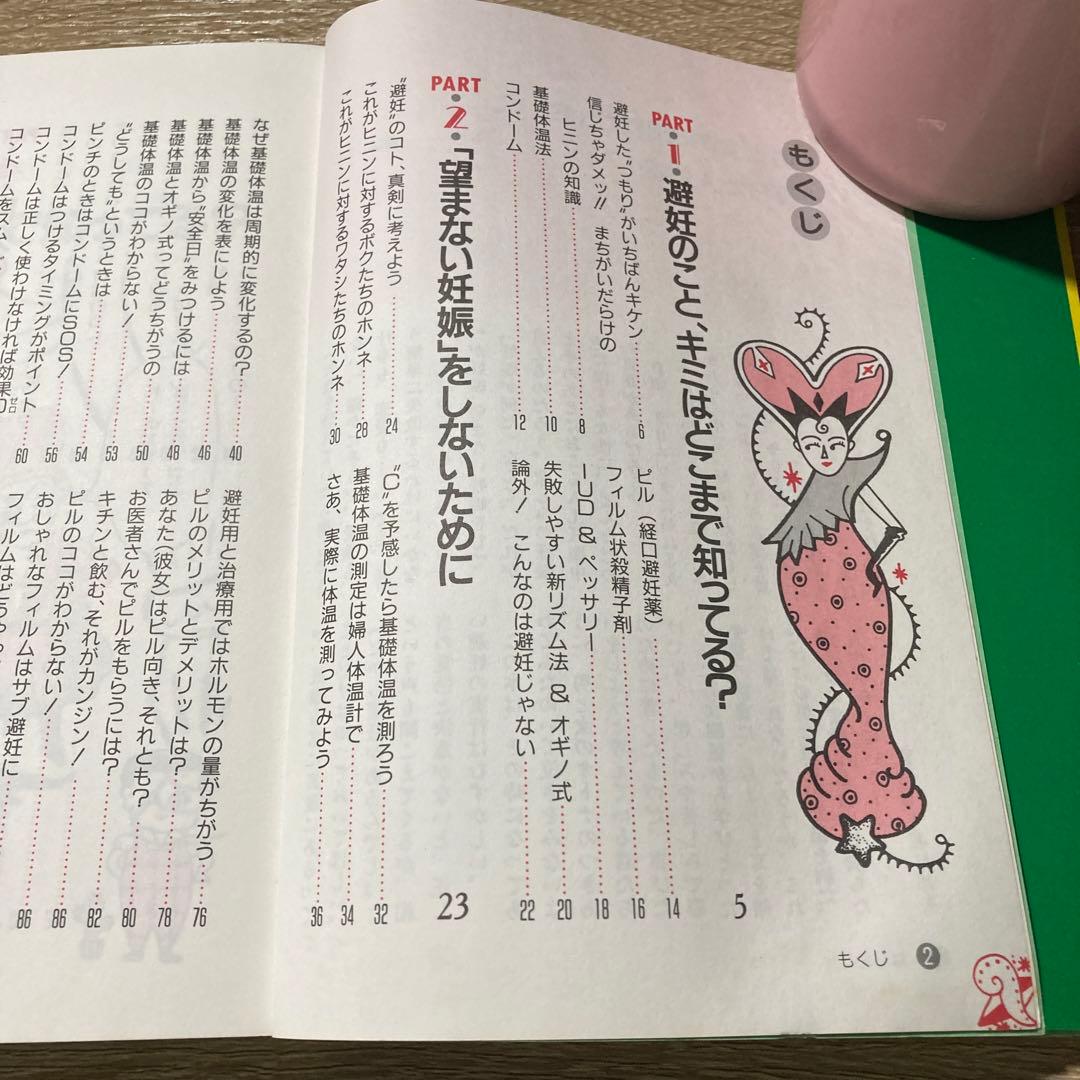 もくじ
PART・1・避妊のこと、キミはどこまで知ってる? 5
避妊した“つもり”がいちばんキケン 6
信じちゃダメッ!! まちがいだらけの
ヒニンの知識 8
基礎体温法 10
コンドーム 12
ピル（経口避妊薬） 14
フィルム状殺精子剤 16
IUD & ペッサリー 18
失敗しやすい新リズム法 & オギノ式 20
論外! こんなのは避妊じゃない 22
PART・2・「望まない妊娠」をしないために 23
“避妊”のコト、真剣に考えよう 24
これがヒニンに対するボクたちのホンネ 28
これがヒニンに対するワタシたちのホンネ 30
“C”を予感したら基礎体温を測ろう 32
基礎体温の測定は婦人体温計で 34
さあ、実際に体温を測ってみよう 36
もくじ 2
なぜ基礎体温は周期的に変化するの? 40
基礎体温の変化を表にしよう 46
基礎体温から“安全日”をみつけるには 48
基礎体温とオギノ式ってどうちがうの 50
基礎体温のココがわからない! 53
“どうしても”というときは 54
ピンチのときはコンドームにSOS! 56
コンドームはつけるタイミングがポイント 60
コンドームは正しく使わけなければ効果0ゼロ
コンドームをスム
避妊用と治療用ではホルモンの量がちがう 76
ピルのメリットとデメリットは? 78
あなた（彼女）はピル向き、それとも? 80
お医者さんでピルをもらうには? 82
キチンと飲む、それがカンジン! 86
ピルのココがわからない! 86
おしゃれなフィルムはサブ避妊に
フィルムは